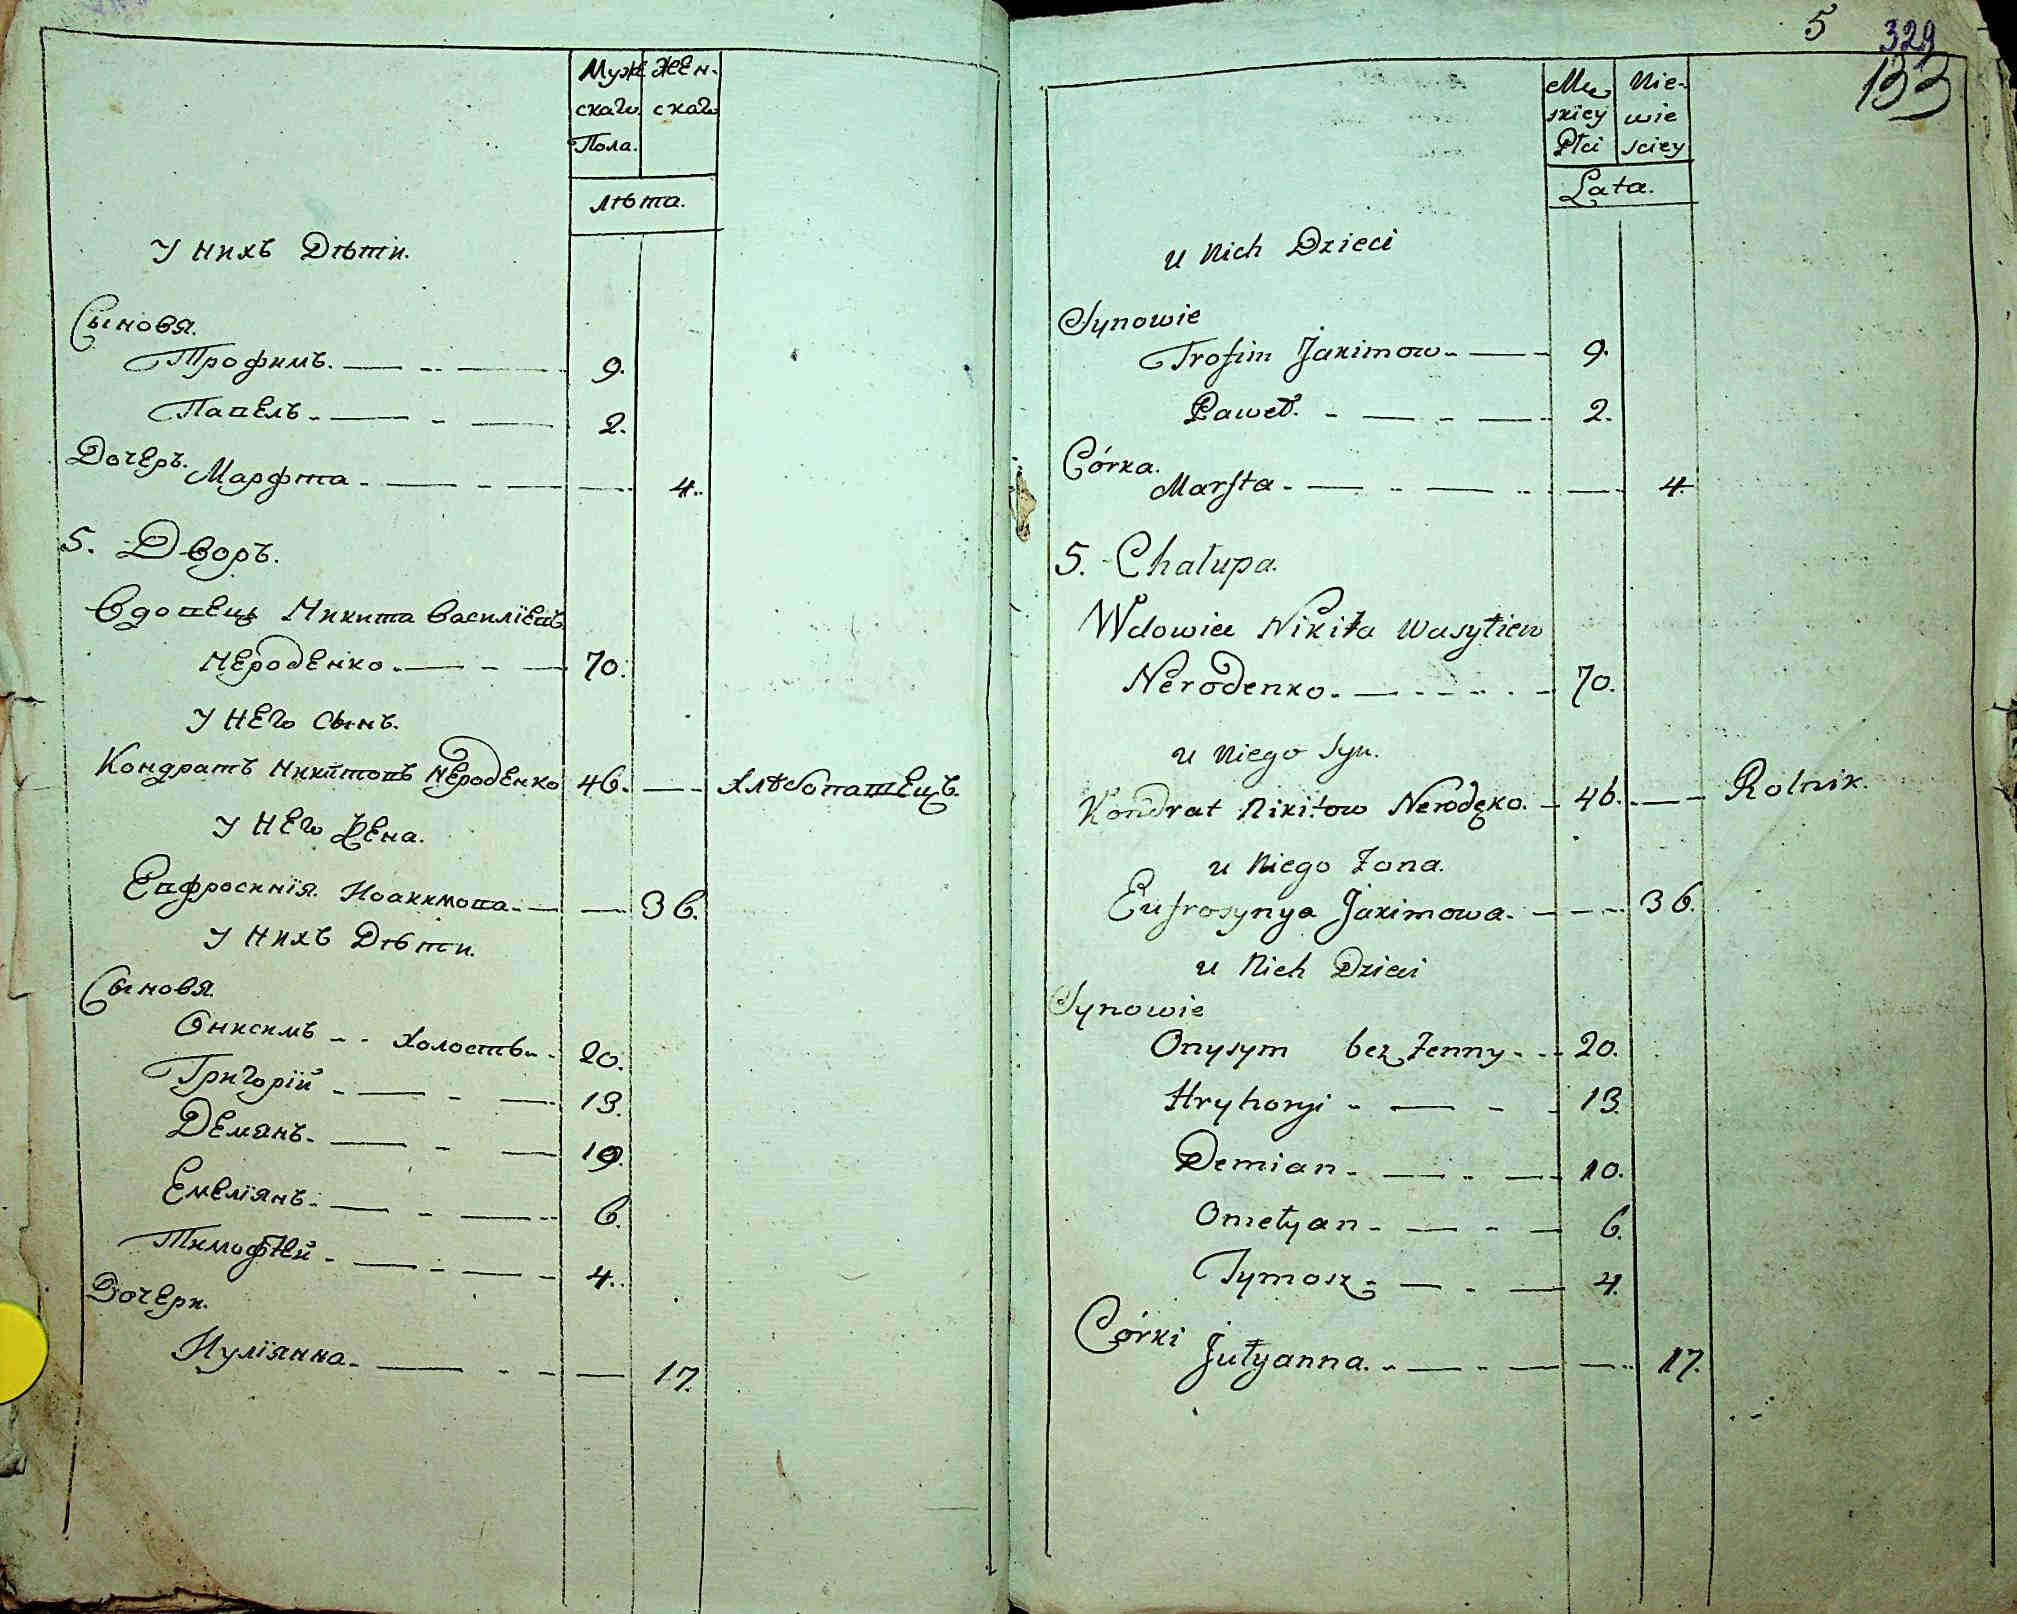 Муж Жен-
скаго скаго
Пола.
лѣта.
У нихъ Дѣти.
Сыновя.
Трофимъ. 9.
Павелъ 2.
Дочерь.
Марфта 4.
5. Дворъ.
Вдовецъ Никита Василіевъ
Нероденко 70.
У него сынъ.
Кондратъ Никитовъ Нероденко 46. Хлѣбопашецъ.
У него жена.
Евфросинія Иоакимова 36.
У нихъ Дѣти.
Сыновя
Онисимъ Холостъ 20.
Григорій 13.
Демянъ 10.
Емеліянъ 6.
Тимофѣй 4.
Дочери.
Иуліянна 17.
5 329
133
Mę Nie-
skiey wie
Płci sciey
Lata.
u nich Dzieci
Synowie
Trofim Jakimow 9.
Paweł. 2.
Córka.
Marfta 4.
5. Chałupa.
Wdowiec Nikita Wasyliew
Nerodenko 70.
u niego Syn.
Kondrat Nikitow Nerodęko. 46. Rolnik.
u niego Zona.
Eufrosynya Jakimowa. 36.
u nich Dzieci
Synowie
Onysym bez Zenny 20.
Hryhoryi 13.
Demian 10.
Omełyan 6.
Tymosz 4.
Córki
Jułyanna. 17.